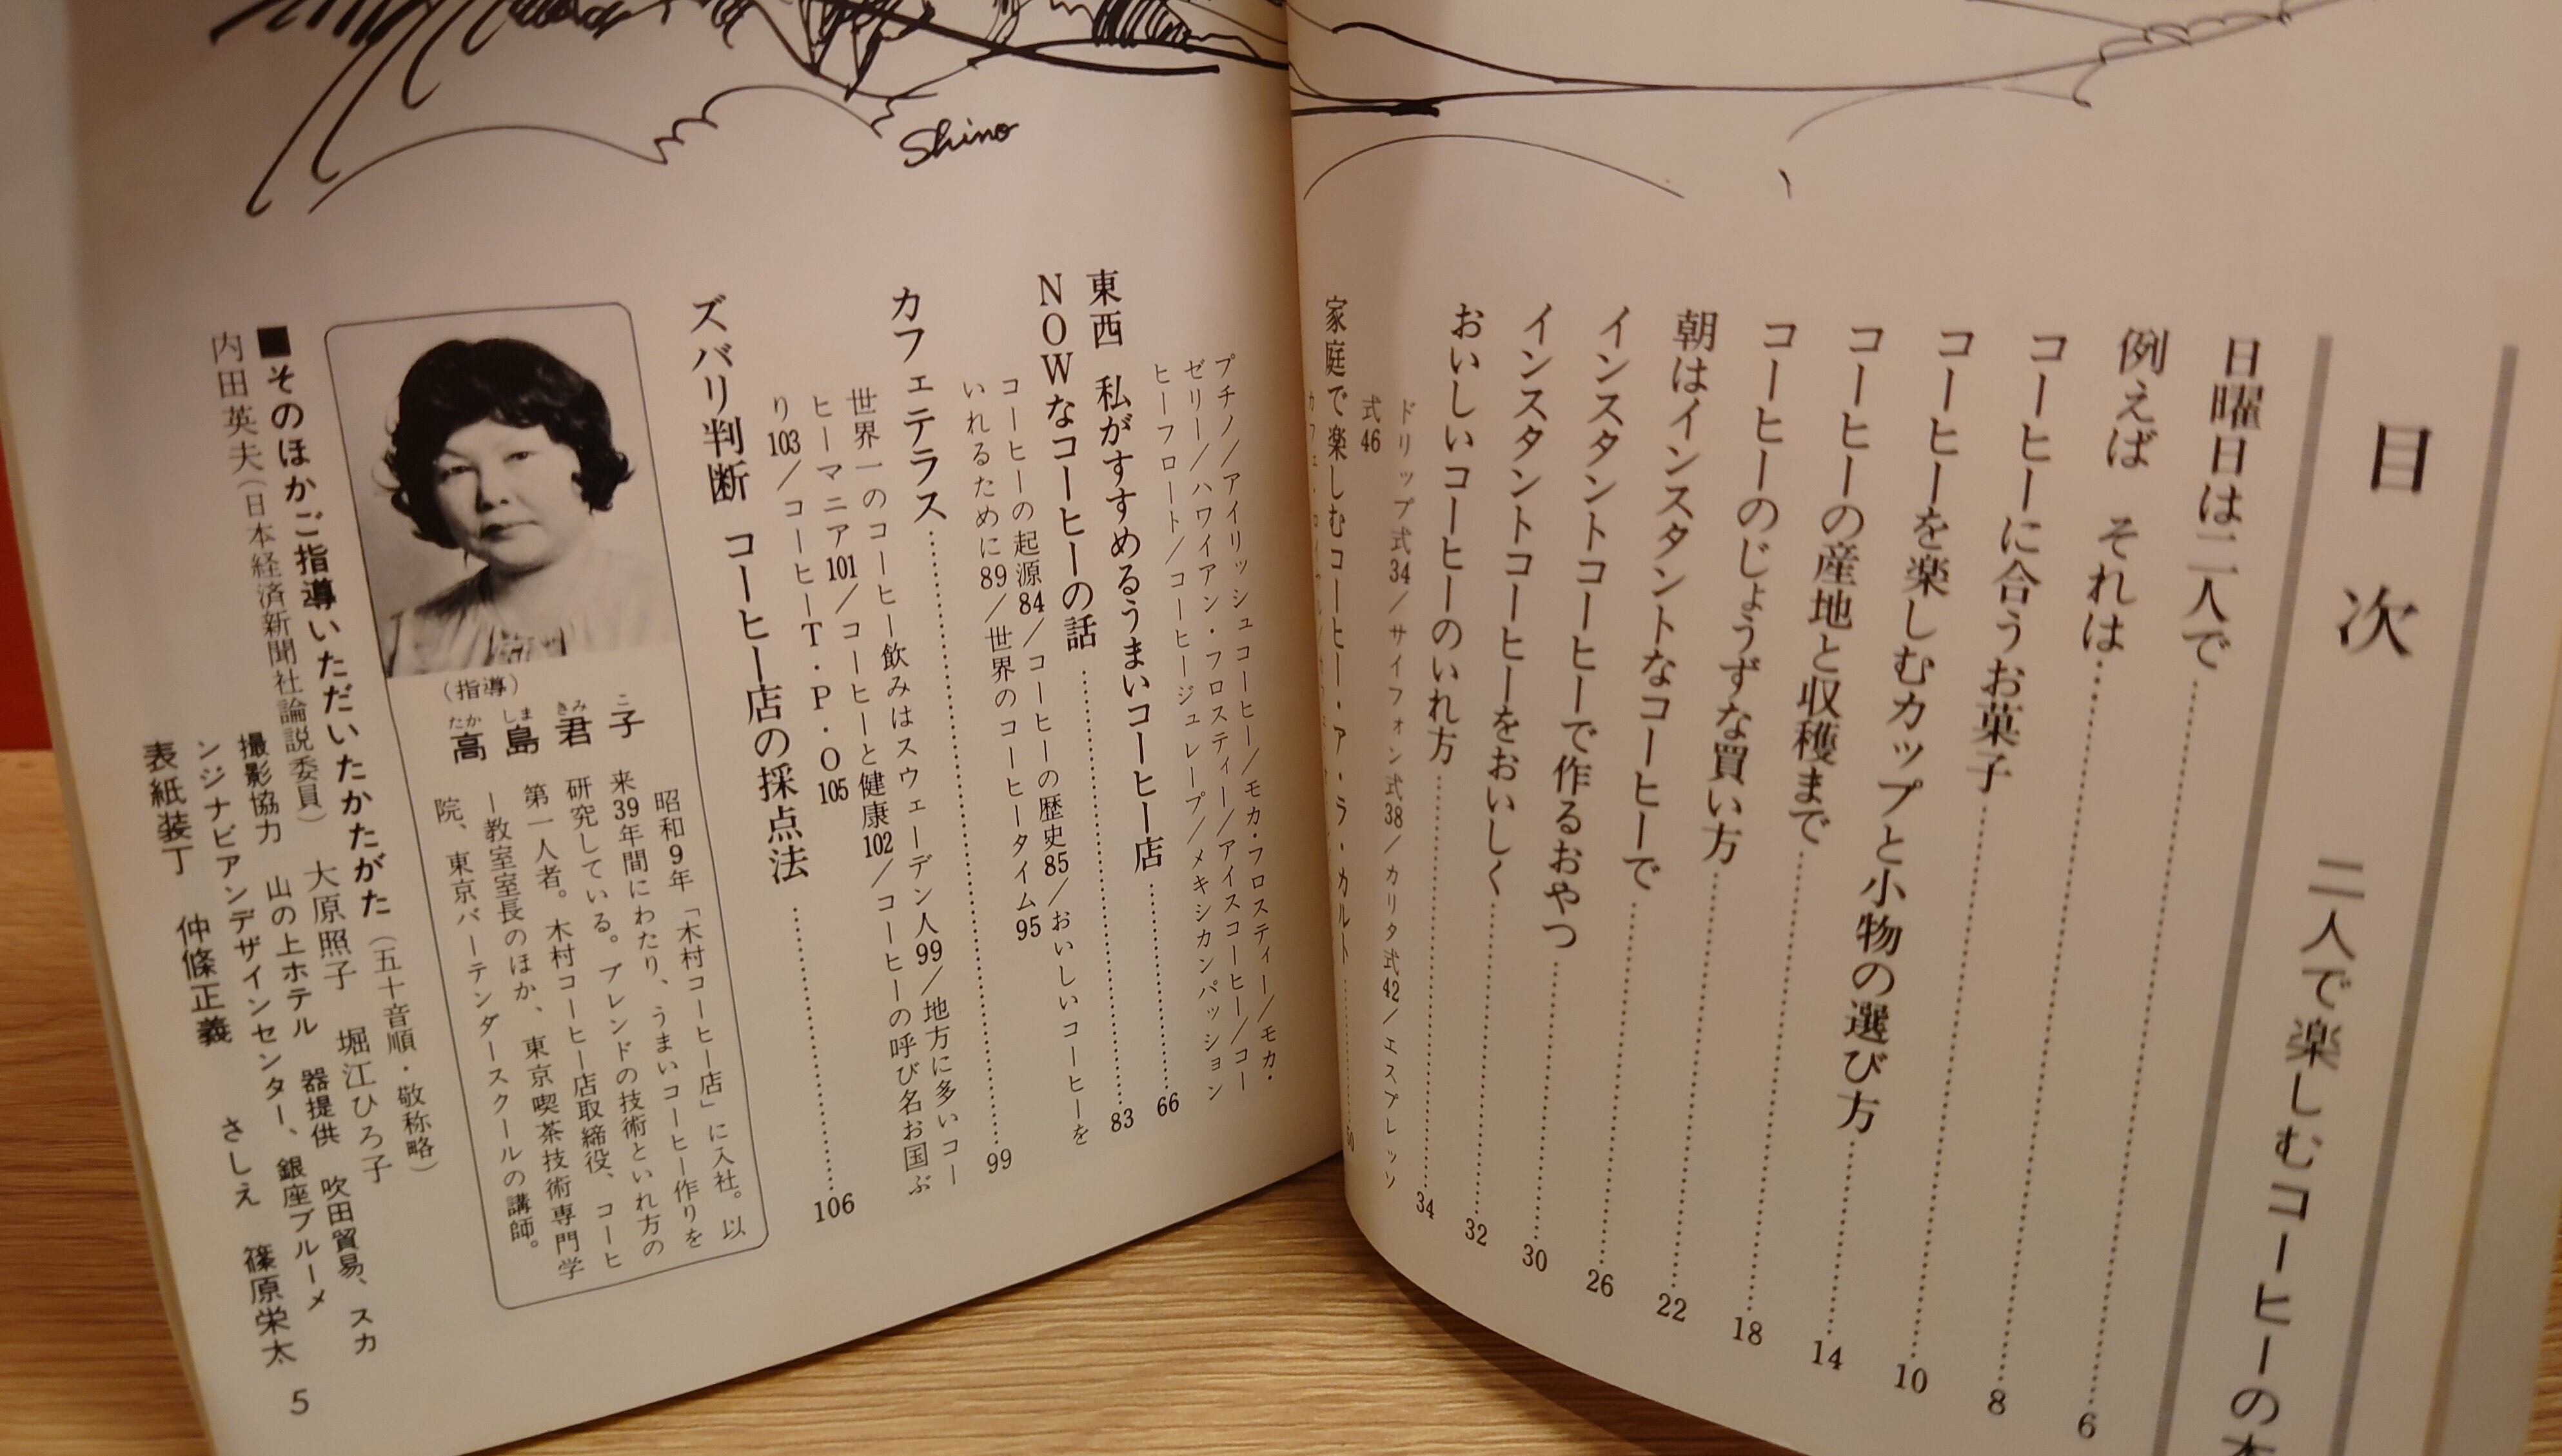 Shino
目次
二人で楽しむコーヒーの
日曜日は二人で……6
例えば それは……8
コーヒーに合うお菓子……10
コーヒーを楽しむカップと小物の選び方……14
コーヒーの産地と収穫まで……18
コーヒーのじょうずな買い方……22
朝はインスタントなコーヒーで……26
インスタントコーヒーで作るおやつ……30
インスタントコーヒーをおいしく……32
おいしいコーヒーのいれ方……34
ドリップ式34/サイフォン式38/カリタ式42/エスプレッソ
式46
家庭で楽しむコーヒー・ア・ラ・カルト……50
プチノ/アイリッシュコーヒー/モカ・フロスティー/モカ・
ゼリー/ハワイアン・フロスティー/アイスコーヒー/コー
ヒーフロート/コーヒージュレープ/メキシカンパッション
東西 私がすすめるうまいコーヒー店……66
NOWなコーヒーの話……83
コーヒーの起源84/コーヒーの歴史85/おいしいコーヒーを
いれるために89/世界のコーヒータイム95
カフェテラス……99
世界一のコーヒー飲みはスウェーデン人99/地方に多いコー
ヒーマニア101/コーヒーと健康102/コーヒーの呼び名お国ぶ
り103/コーヒーT・P・O105
ズバリ判断 コーヒー店の採点法……106
(指導)
高島君子
たかしまきみこ
昭和9年「木村コーヒー店」に入社。以
来39年間にわたり、うまいコーヒー作りを
研究している。ブレンドの技術といれ方の
第一人者。木村コーヒー店取締役、コーヒ
ー教室室長のほか、東京喫茶技術専門学
院、東京バーテンダースクールの講師。
■そのほかご指導いただいたかたがた(五十音順・敬称略)
内田英夫(日本経済新聞社論説委員) 大原照子 堀江ひろ子
撮影協力 山の上ホテル 器提供 吹田貿易、スカ
ンジナビアンデザインセンター、銀座ブルーメ
表紙装丁 仲條正義 さしえ 篠原栄太
5